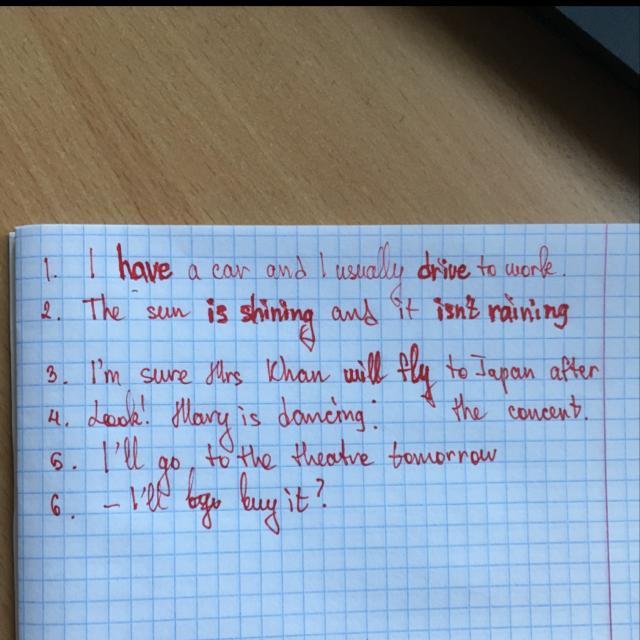 1. I have a car and I usually drive to work.
2. The sun is shining and it isn't raining
3. I'm sure Mrs Khan will fly to Japan after
4. Look! Mary is dancing. the concent.
5. I'll go to the theatre tomorrow
6. – I'll buy it?